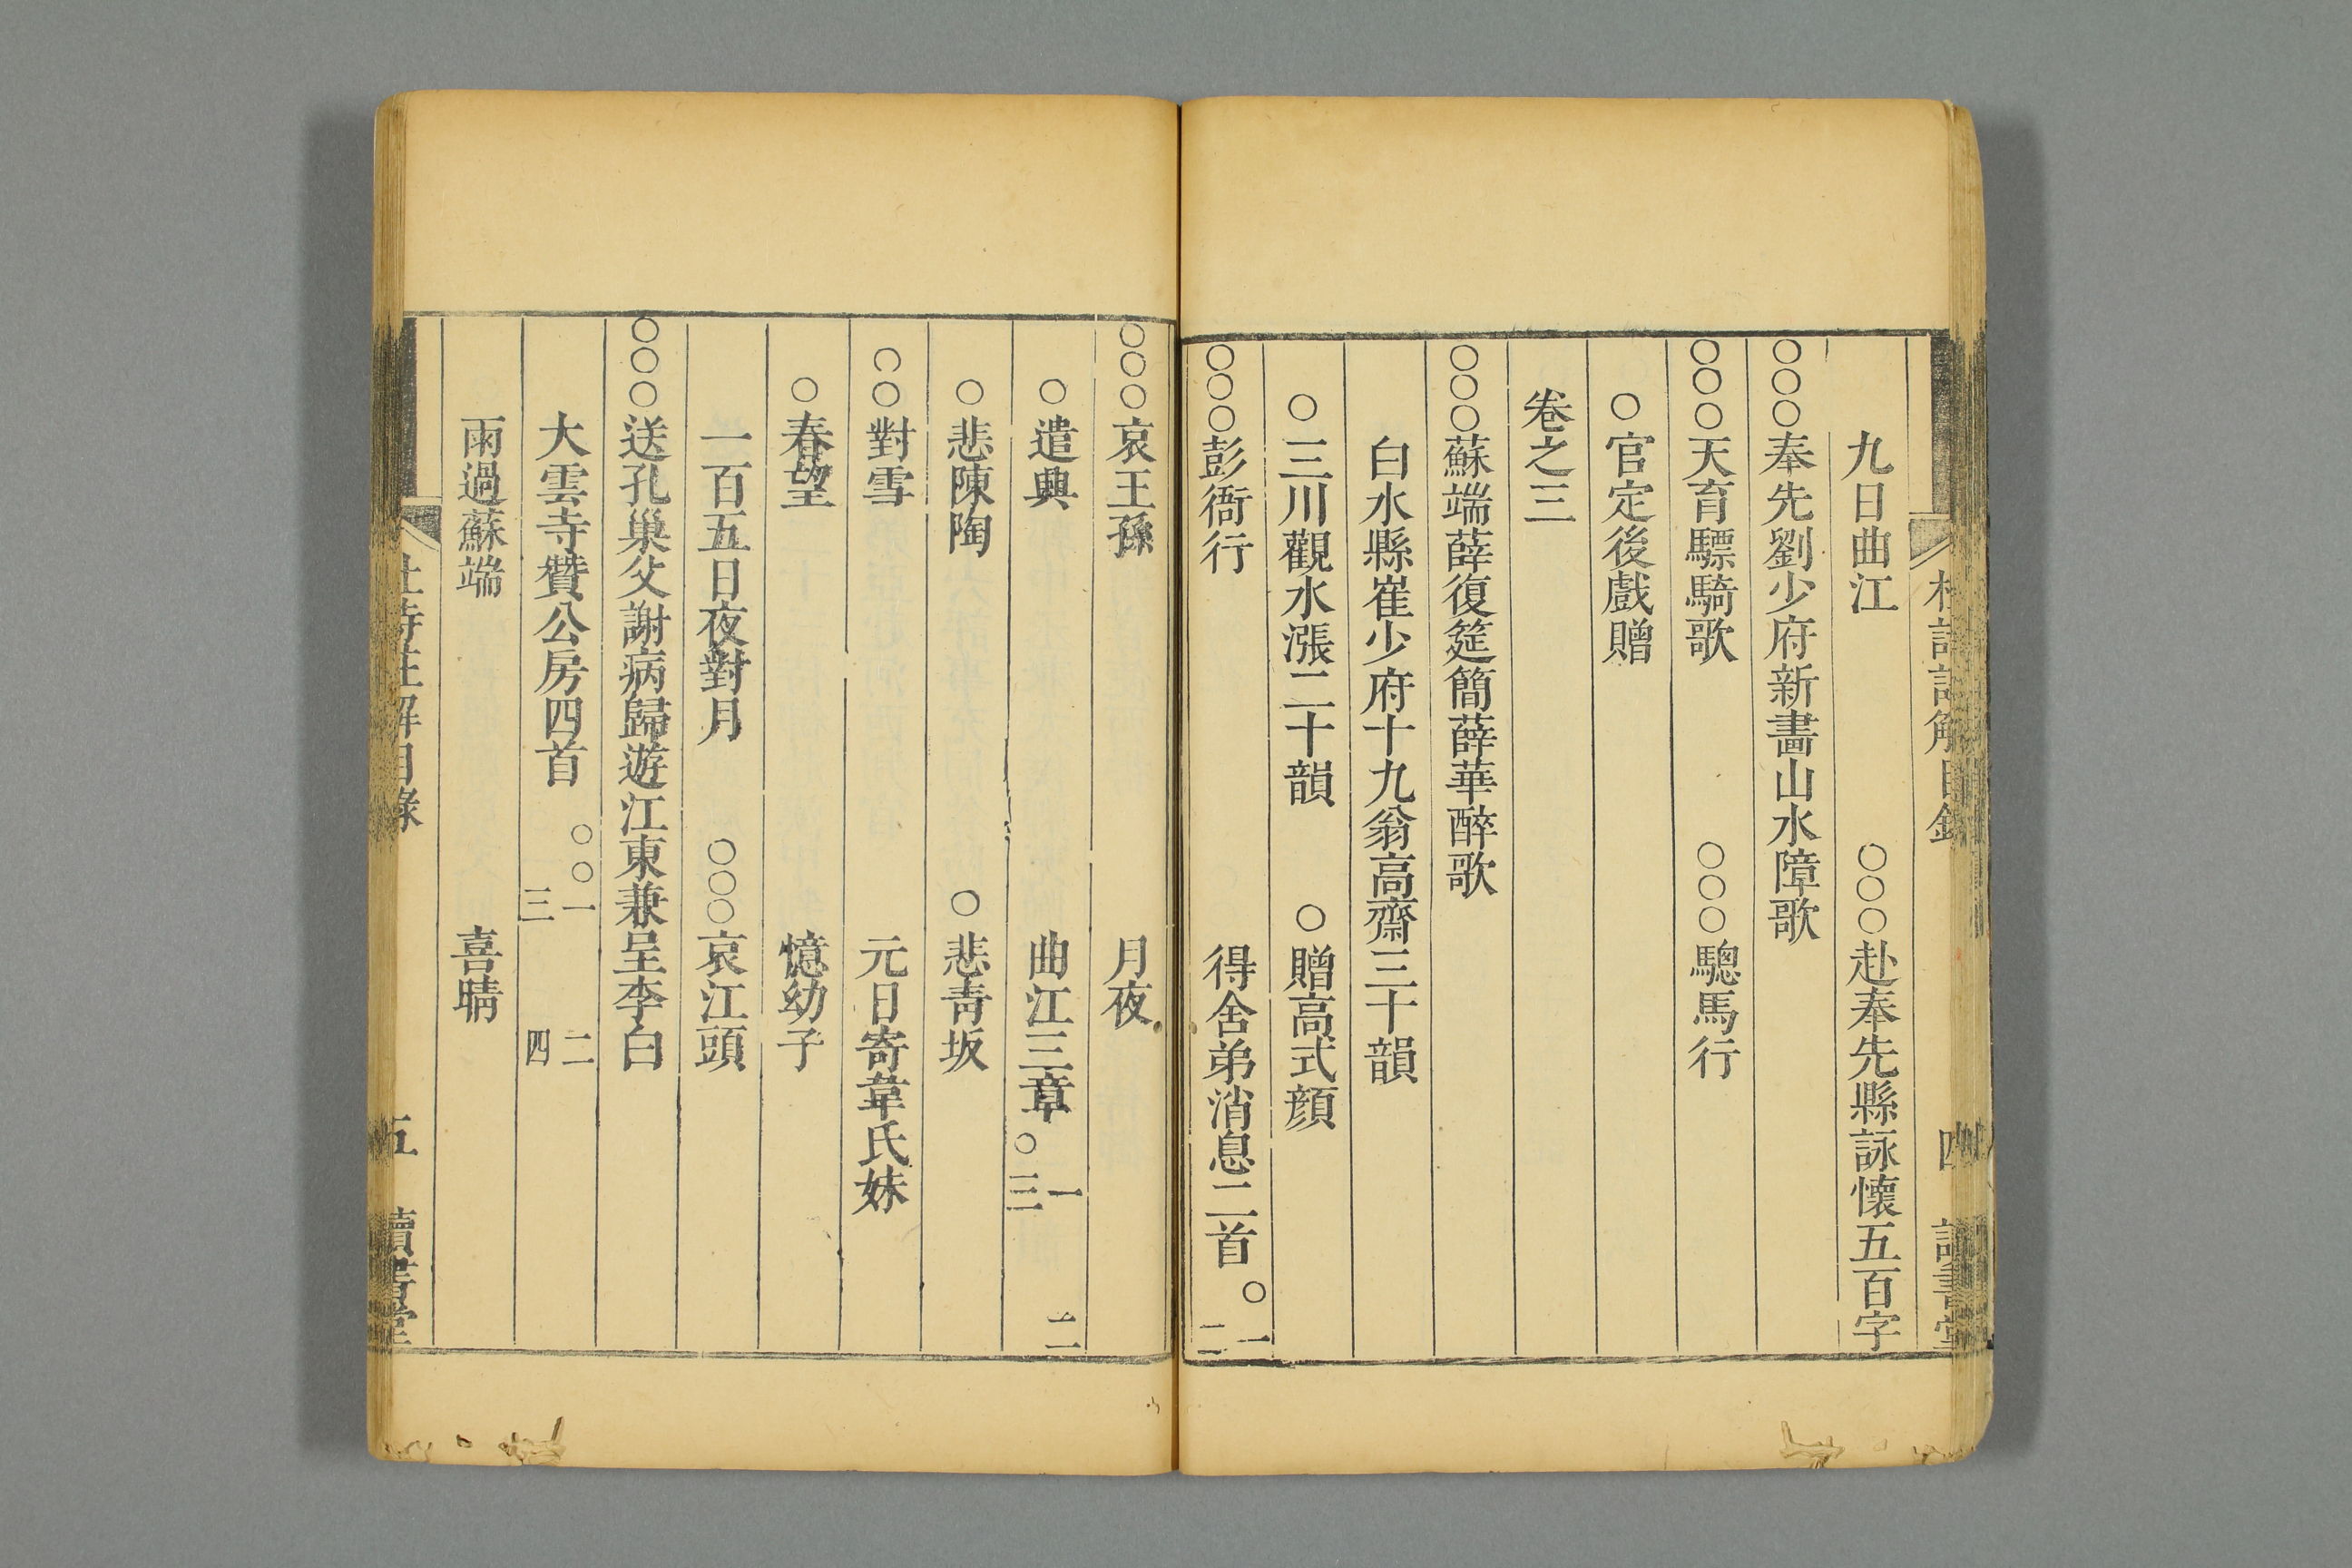 九日曲江 ○○○赴奉先縣詠懷五百字
○○○奉先劉少府新畫山水障歌
○○○天育驃騎歌 ○○○驄馬行
○官定後戲贈
卷之三
○○○蘇端薛復筵簡薛華醉歌
白水縣崔少府十九翁高齋三十韻
○三川觀水漲二十韻 ○贈高式顔
○○○彭衙行 得舍弟消息二首 ○一 二
○○○哀王孫 月夜
○遣興 曲江三章 一 二 ○三
○悲陳陶 ○悲靑坂
○○對雪 元日寄韋氏妹
○春望 憶幼子
一百五日夜對月 ○○○哀江頭
○○○送孔巢父謝病歸遊江東兼呈李白
大雲寺贊公房四首 ○○一 二 三 四
雨過蘇端 喜晴
杜詩註解目錄 五 讀書堂